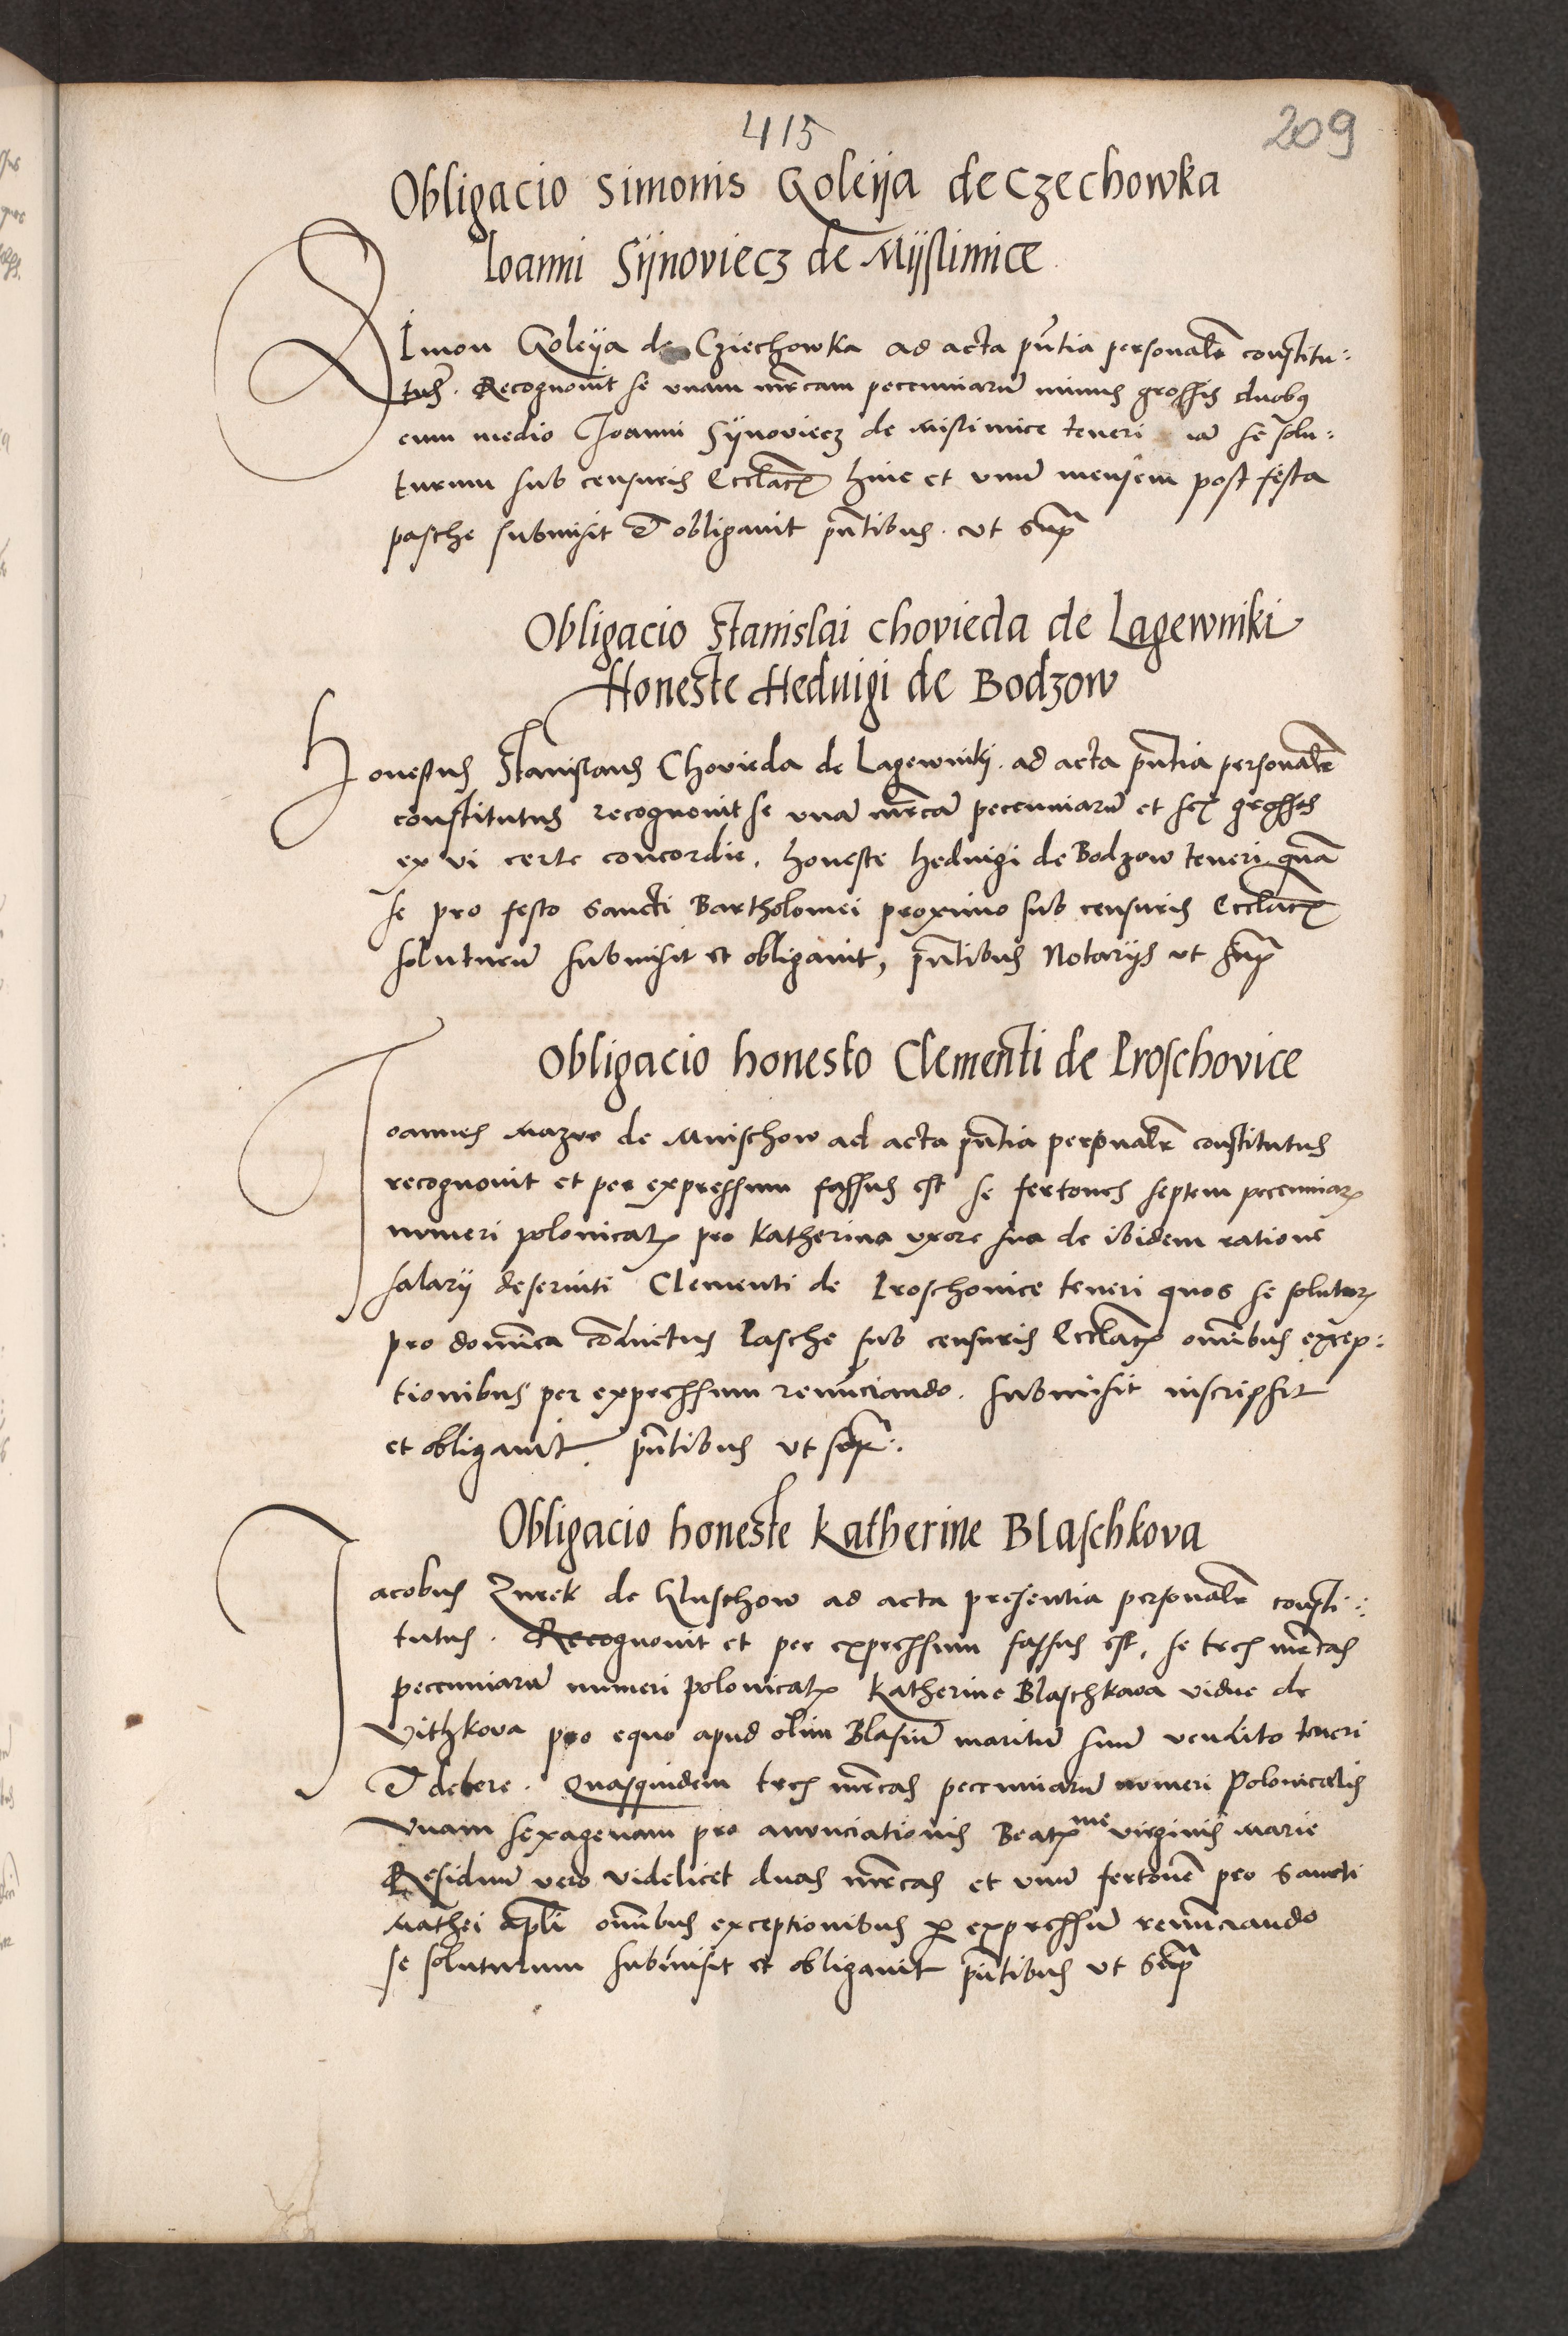 415
209
Obligacio Simonis Goleÿa de Czechowka
Ioanni Sÿnoviecz de Mÿslimice
Simon Goleÿa de Cziechowka ad acta pn̄tia personalr̄ constitu:
tus. Recognovit se vnam mr̄cam pecuniarū minus grossis duobus
cum medio Joanni Sÿnoviecz de Mislimice teneri se solu:
turum sub censuris Eccl̄ac̄ hinc et vnū mensem post festa
pasche submisit et obligavit pn̄tibus. ut sup
Obligacio Stanislai Chovieda de Lagewniki
Honeste Hedvigi de Bodzow
Honestus Stanislaus Chovieda de Lagewniki. ad acta pn̄tia personalr̄
constitutus recognovit se vnā mr̄cā pecuniarū et sex grossos
ex vi certe concordie. honeste hedvigi de Bodzow teneri quā
se pro festo Sancti Bartholomei proximo sub censuris Eccl̄ac̄
soluturū submisit et obligavit, pn̄tibus Notarijs ut sup
Obligacio honesto Clementi de Proschovice
Joannes Mazur de Mnischow ad acta pn̄tia personalr̄ constitutus
recognovit et per expressum fassus est se fertones septem pecuniar
numeri polonical pro Katherina vxore sua de ibidem ratione
salarij deserviti Clementi de Proschovice teneri quos se solutur
pro domīca cōductus Pasche sub censuris Eccl̄ac̄ omībus excep:
tionibus per expressum renunciando. submisit inscripsit
et obligavit. pn̄tibus ut sup:.
Obligacio honeste Katherine Blaschkova
Jacobus Zurek de Gluschow ad acta presentia personalr̄ consti:
tutus. Recognovit et per expressum fassus est, se tres mr̄cas
pecuniarū numeri polonical Katherine Blaschkova vidue de
Vithkova pro equo apud olim Blasiū maritū suū vendito teneri
et debere. Quasquidem tres mr̄cas pecuniarū numeri Polonicalis
Vnam sexagenam pro anunciationis Beatme virginis Marie
Residuū vero videlicet duas mr̄cas et vnū fertonē pro Sancti
Mathei apl̄i omībus exceptionibus per expressū renunciando
se soluturum submisit et obligavit pn̄tibus ut Sup